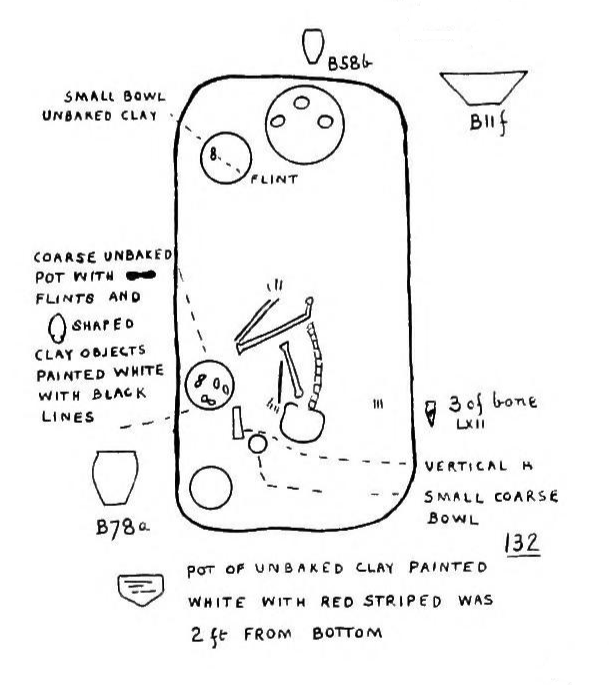 B58b
SMALL BOWL
UNBAKED CLAY
B11f
FLINT
COARSE UNBAKED
POT WITH
FLINTS AND
SHAPED
CLAY OBJECTS
PAINTED WHITE
WITH BLACK
LINES
3 of bone
LXII
VERTICAL H
SMALL COARSE
BOWL
B78a
132
POT OF UNBAKED CLAY PAINTED
WHITE WITH RED STRIPED WAS
2 ft FROM BOTTOM